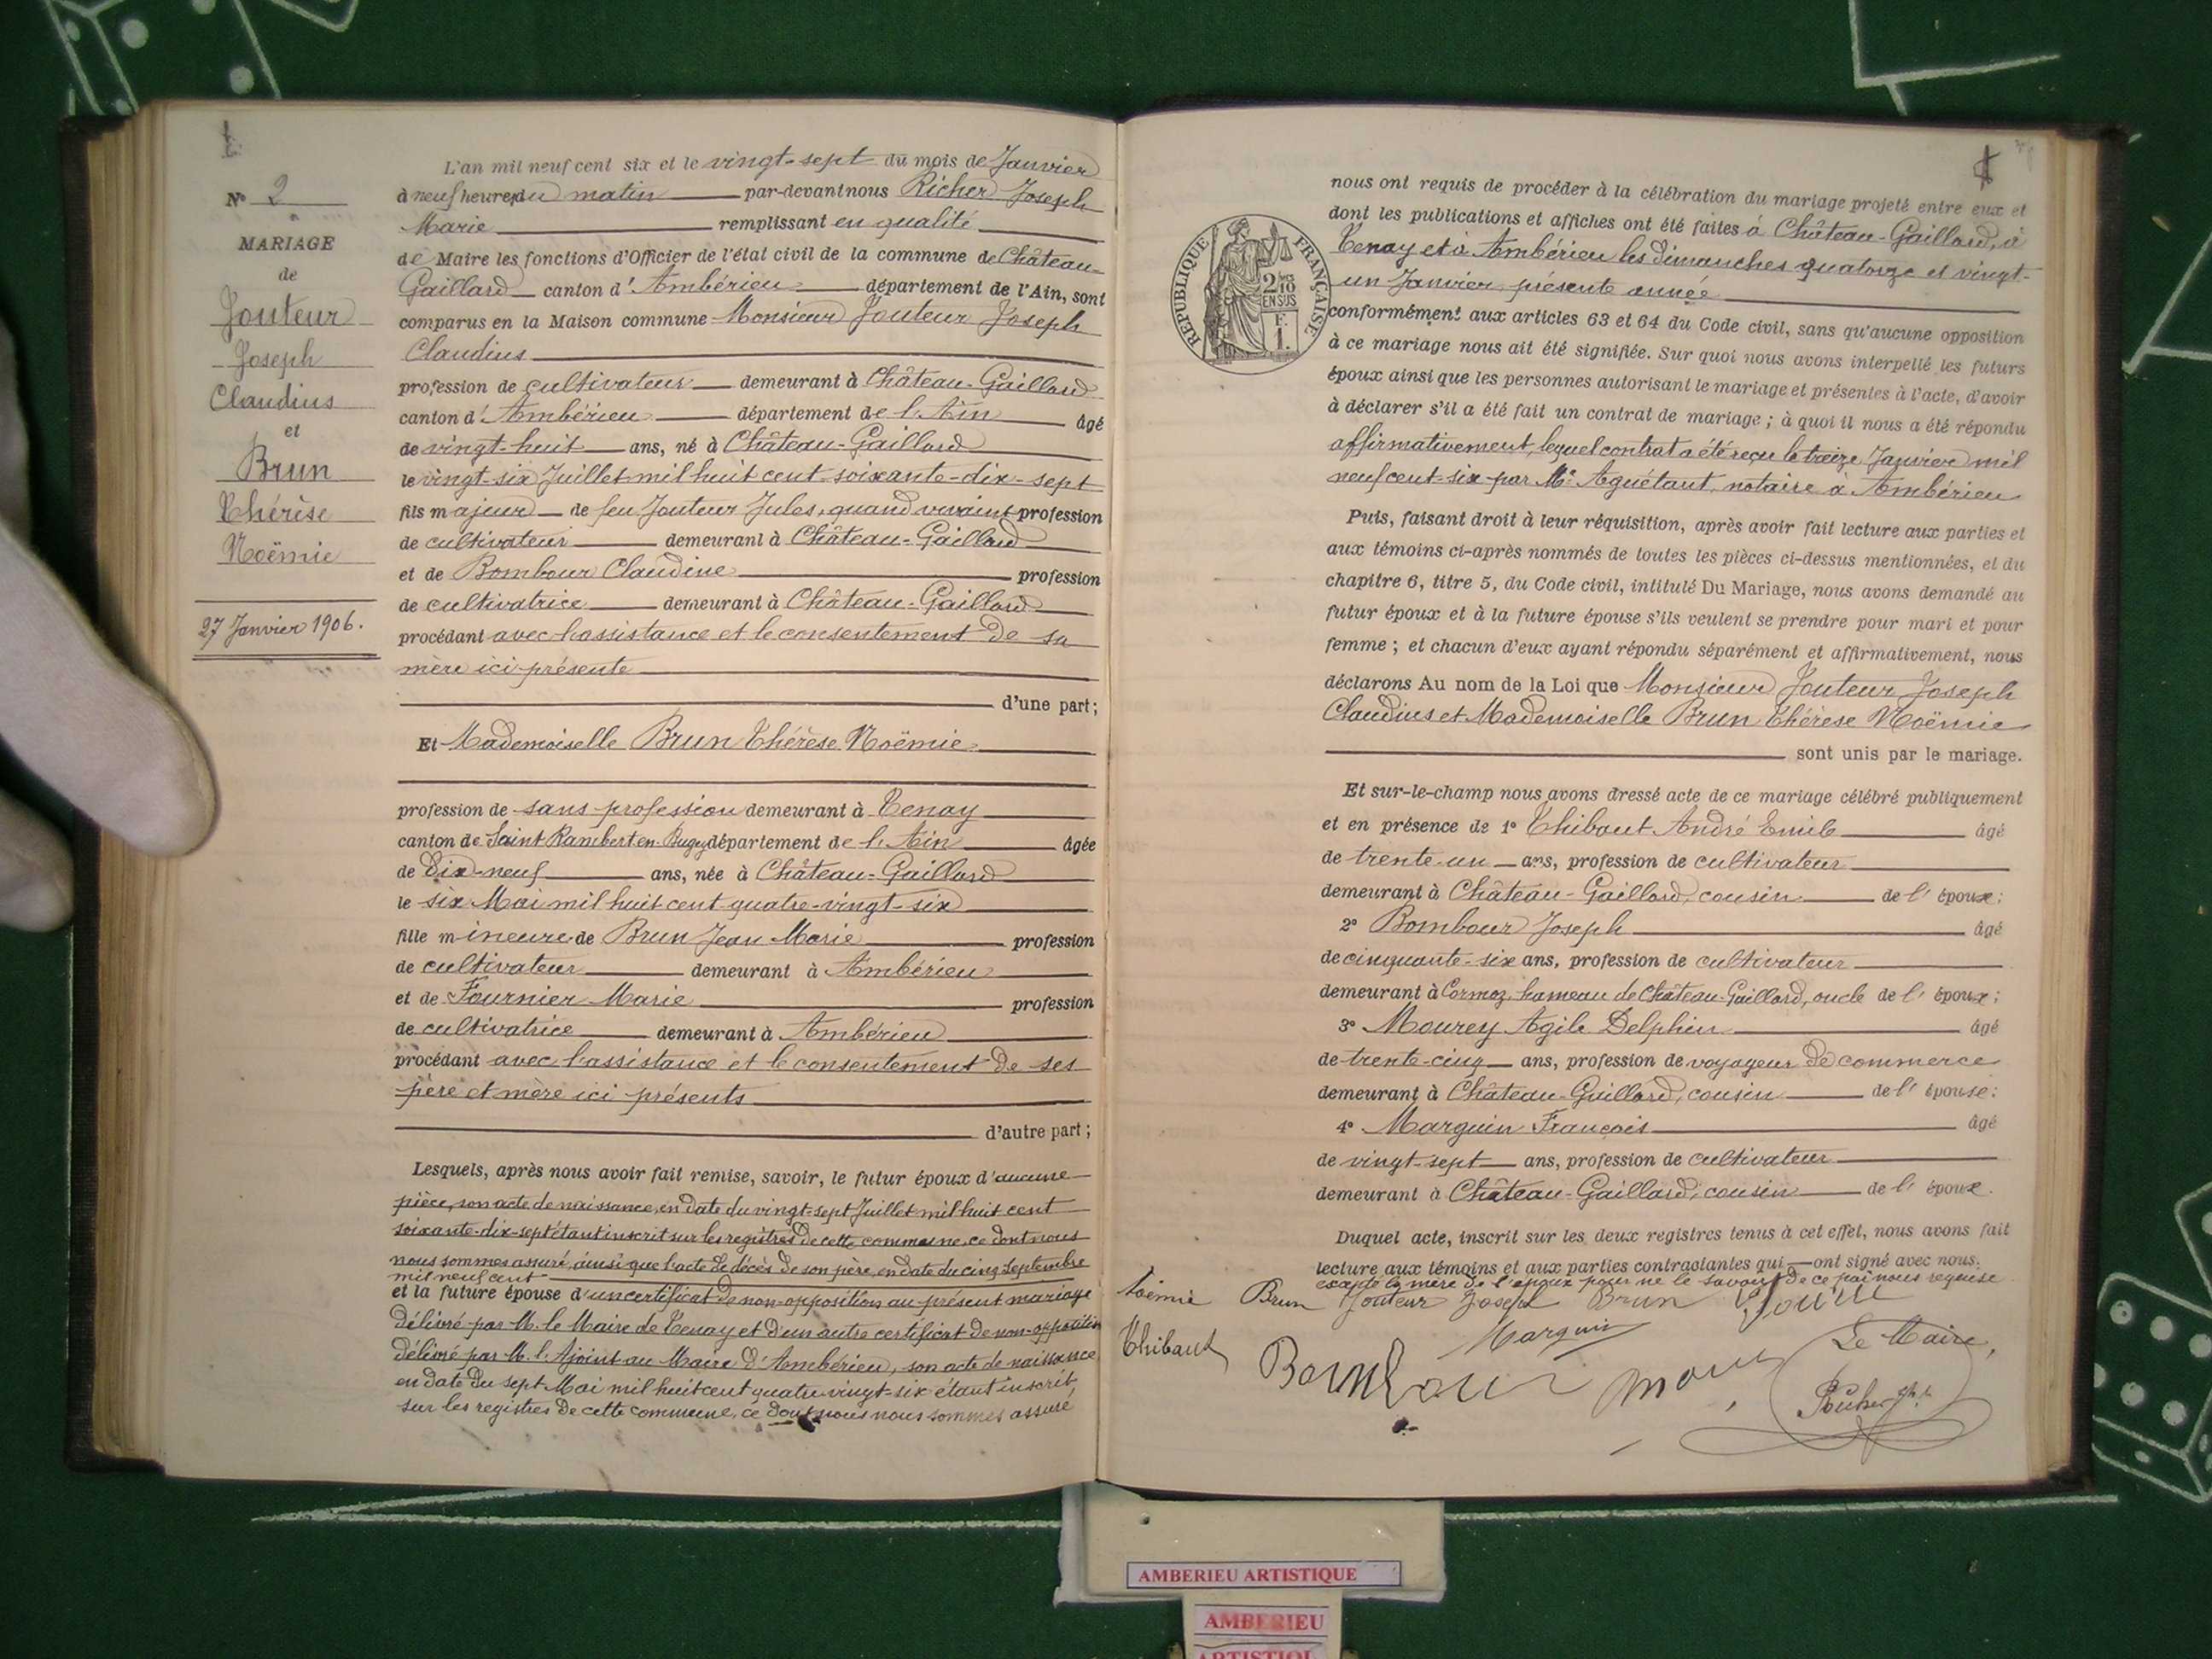 N° 2
MARIAGE
de
Jouteur
Joseph
Claudius
et
Brun
Thérèse
Noëmie
27 Janvier 1906.
L'an mil neuf cent six et le vingt-sept du mois de Janvier
à neuf heures du matin par-devant nous Richer Joseph
Marie remplissant en qualité
de Maire les fonctions d'Officier de l'état civil de la commune de Château-
Gaillard canton d'Ambérieu département de l'Ain, sont
comparus en la Maison commune Monsieur Jouteur Joseph
Claudius
profession de cultivateur demeurant à Château-Gaillard
canton d'Ambérieu département de l'Ain âgé
de vingt-huit ans, né à Château-Gaillard
le vingt-six Juillet mil huit cent soixante-dix-sept
fils majeur de feu Jouteur Jules, quand vivaint profession
de cultivateur demeurant à Château-Gaillard
et de Bombour Claudine profession
de cultivatrice demeurant à Château-Gaillard
procédant avec l'assistance et le consentement de sa
mère ici présente
d'une part;
Et Mademoiselle Brun Thérèse Noëmie
profession de sans profession demeurant à Tenay
canton de Saint Rambert en Bugey département de l'Ain âgée
de Dix-neuf ans, née à Château-Gaillard
le six Mai mil huit cent quatre-vingt-six
fille mineure de Brun Jean Marie profession
de cultivateur demeurant à Ambérieu
et de Fournier Marie profession
de cultivatrice demeurant à Ambérieu
procédant avec l'assistance et le consentement de ses
père et mère ici présents
d'autre part;
Lesquels, après nous avoir fait remise, savoir, le futur époux d'aucune
pièce, son acte de naissance, en date du vingt-sept Juillet mil huit cent
soixante-dix-sept étant inscrit sur les registres de cette commune, ce dont nous
nous sommes assuré, ainsi que l'acte de décès de son père, en date du cinq Septembre
mil neuf cent
et la future épouse d'un certificat de non-opposition au présent mariage
délivré par M. le Maire de Tenay et d'un autre certificat de non-opposition
délivré par M. l'Ajoint au Maire d'Ambérieu, son acte de naissance
en date du sept Mai mil huit cent quatre-vingt-six étant inscrit
sur les registres de cette commune, ce dont nous nous sommes assuré
RÉPUBLIQUE FRANÇAISE
2/10
EN SUS
F.
1.
nous ont requis de procéder à la célébration du mariage projeté entre eux et
dont les publications et affiches ont été faites à Château-Gaillard, à
Tenay et à Ambérieu les dimanches quatorze et vingt-
un Janvier, présente année
conformément aux articles 63 et 64 du Code civil, sans qu'aucune opposition
à ce mariage nous ait été signifiée. Sur quoi nous avons interpellé les futurs
époux ainsi que les personnes autorisant le mariage et présentes à l'acte, d'avoir
à déclarer s'il a été fait un contrat de mariage; à quoi il nous a été répondu
affirmativement, lequel contrat a été reçu le treize Janvier mil
neuf cent-six par Me Aguétant, notaire à Ambérieu
Puis, faisant droit à leur réquisition, après avoir fait lecture aux parties et
aux témoins ci-après nommés de toutes les pièces ci-dessus mentionnées, et du
chapitre 6, titre 5, du Code civil, intitulé Du Mariage, nous avons demandé au
futur époux et à la future épouse s'ils veulent se prendre pour mari et pour
femme; et chacun d'eux ayant répondu séparément et affirmativement, nous
déclarons Au nom de la Loi que Monsieur Jouteur Joseph
Claudius et Mademoiselle Brun Thérèse Noëmie
sont unis par le mariage.
Et sur-le-champ nous avons dressé acte de ce mariage célébré publiquement
et en présence de 1° Thibaut André Emile âgé
de trente-un ans, profession de cultivateur
demeurant à Château-Gaillard, cousin de l'époux;
2° Bombour Joseph âgé
de cinquante-six ans, profession de cultivateur
demeurant à Cormoz, hameau de Château-Gaillard, oncle de l'époux;
3° Mourey Agile Delphin âgé
de trente-cinq ans, profession de voyageur de commerce
demeurant à Château-Gaillard, cousin de l'épouse;
4° Marguin François âgé
de vingt-sept ans, profession de cultivateur
demeurant à Château-Gaillard, cousin de l'époux.
Duquel acte, inscrit sur les deux registres tenus à cet effet, nous avons fait
lecture aux témoins et aux parties contractantes qui ont signé avec nous.
excepté la mère de l'époux pour ne le savoir de ce par nous requise
Noëmie Brun Jouteur Joseph Brun
Thibaut Marguin Le Maire,
Bombour Richer Jph
AMBERIEU ARTISTIQUE
AMBERIEU
ARTISTIQUE